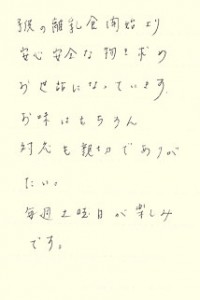 子供の離乳食開始より
安心安全な物を求め
お世話になっています。
お味はもちろん
対応も親切でありが
たい。
毎週土曜日が楽しみ
です。